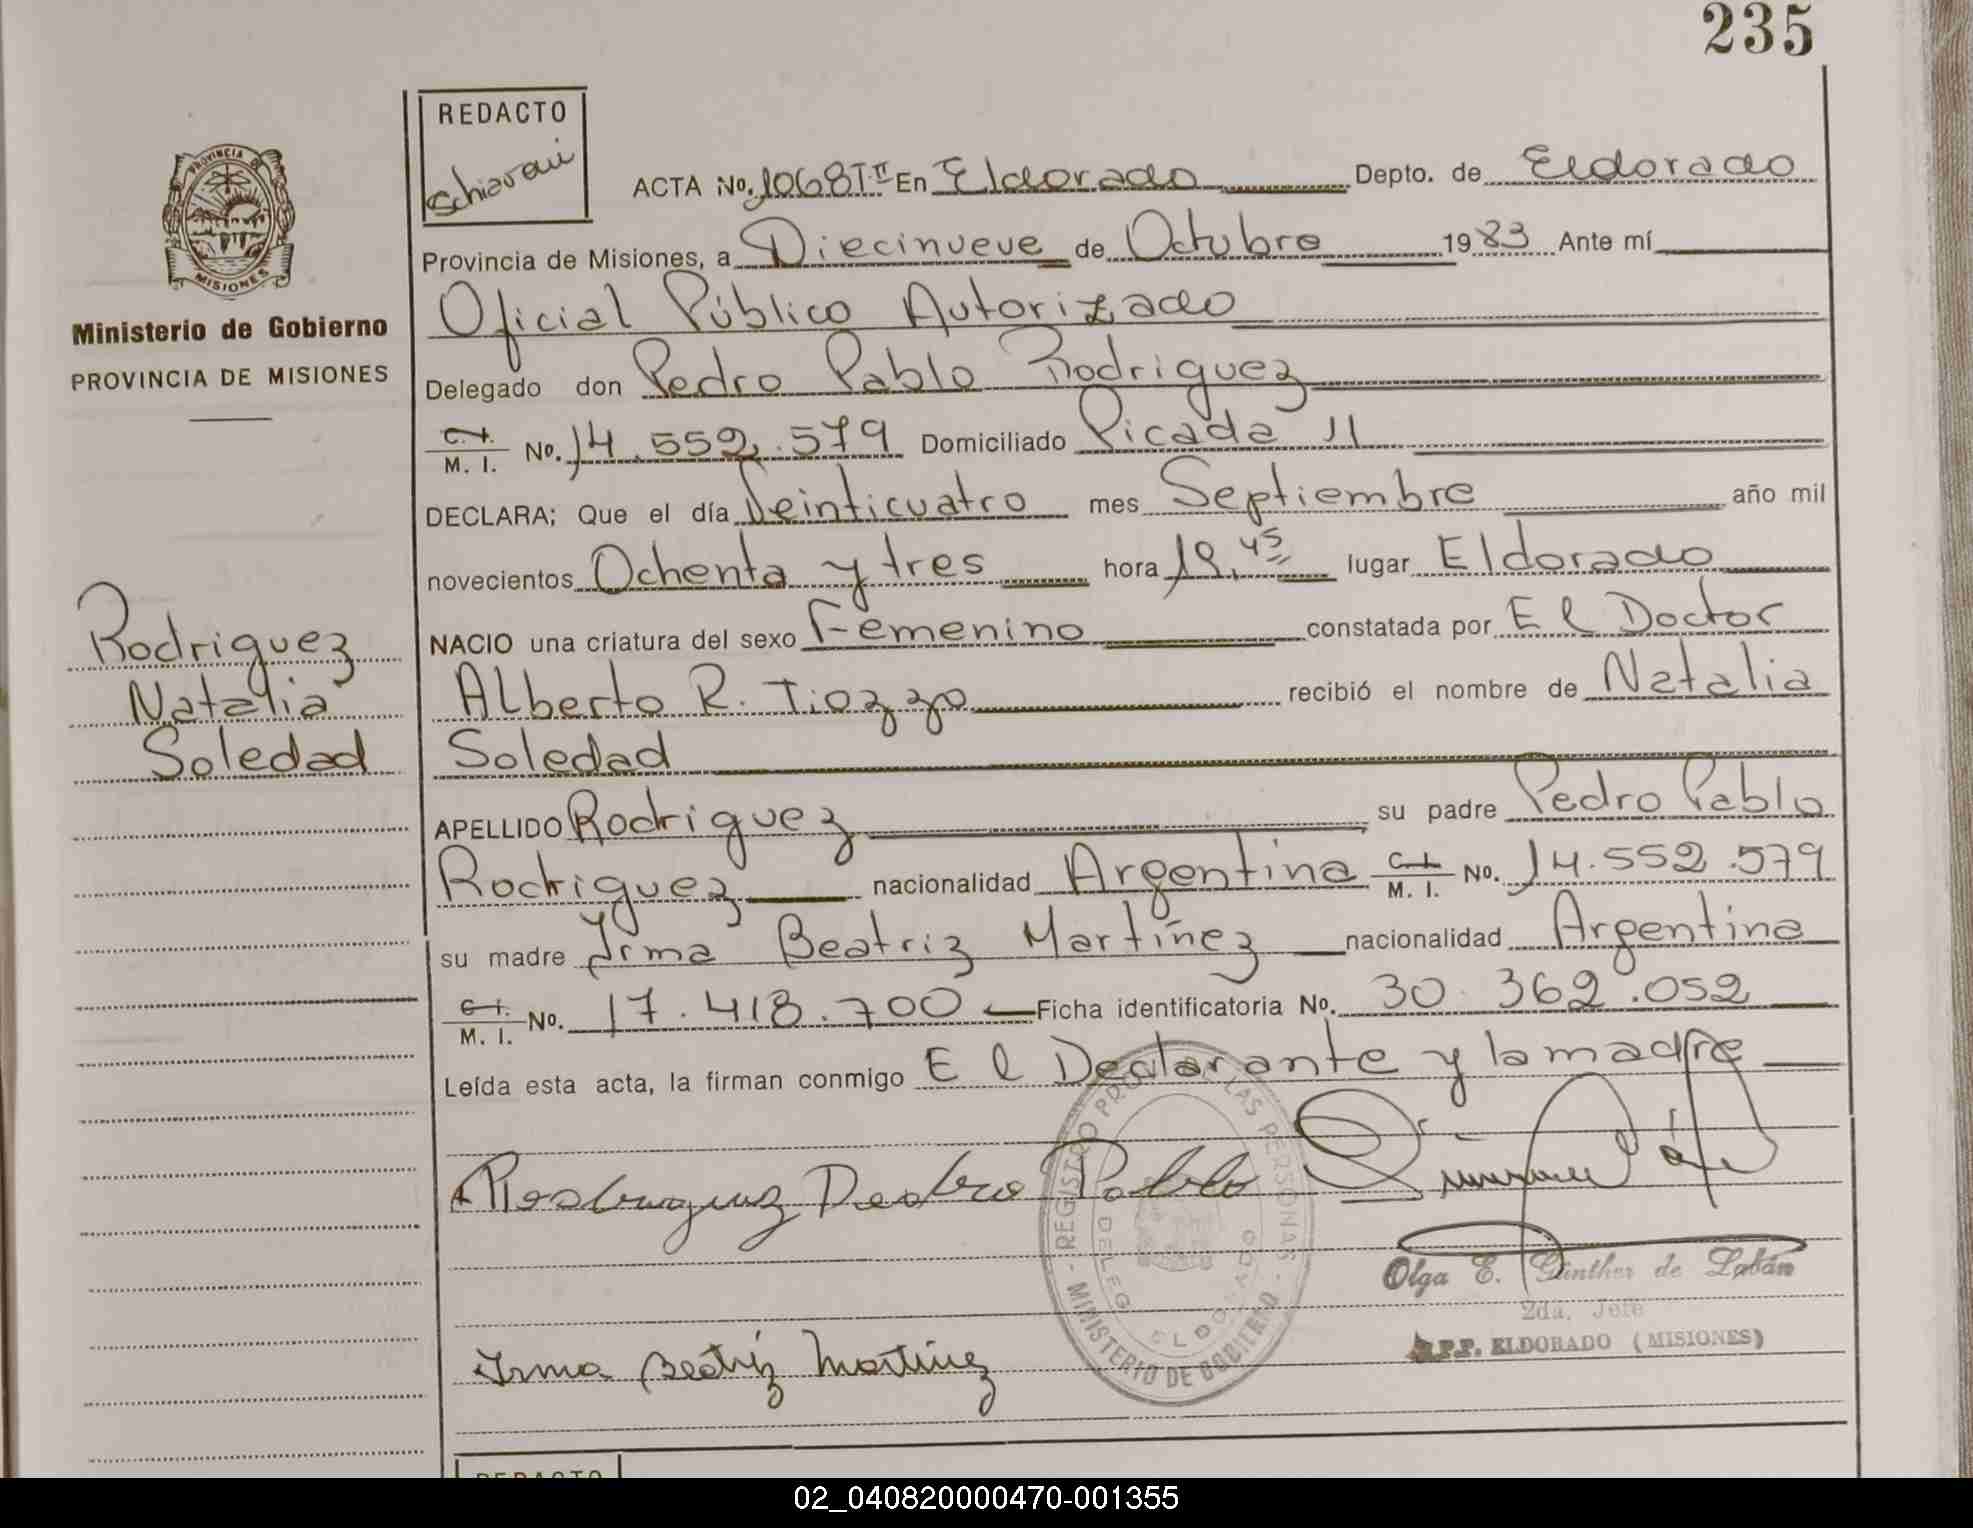 235
REDACTO
Schiavoni
PROVINCIA DE
MISIONES
Ministerio de Gobierno
PROVINCIA DE MISIONES
ACTA No. 1068 T.II En Eldorado Depto. de Eldorado
Provincia de Misiones, a Diecinueve de Octubre 1983 Ante mí
Oficial Público Autorizado
Delegado don Pedro Pablo Rodriguez
C. I. / M. I. No. 14.552.579 Domiciliado Picada 11
DECLARA; Que el día Veinticuatro mes Septiembre año mil
novecientos Ochenta y tres hora 19,45 lugar Eldorado
NACIO una criatura del sexo Femenino constatada por El Doctor
Alberto R. Tiozzo recibió el nombre de Natalia
Soledad
APELLIDO Rodriguez su padre Pedro Pablo
Rodriguez nacionalidad Argentina C. I. / M. I. No. 14.552.579
su madre Irma Beatriz Martínez nacionalidad Argentina
C. I. / M. I. No. 17.418.700 Ficha identificatoria No. 30.362.052
Leída esta acta, la firman conmigo El Declarante y la madre
Rodriguez
Natalia
Soledad
Rodriguez Pedro Pablo
Irma Beatriz Martinez
REGISTRO PRO LAS PERSONAS
MINISTERIO DE GOBIERNO
DELEG ELDORADO
Olga E. Günther de Labán
2da. Jefe
R.P.P. ELDORADO (MISIONES)
REDACTO
02_040820000470-001355